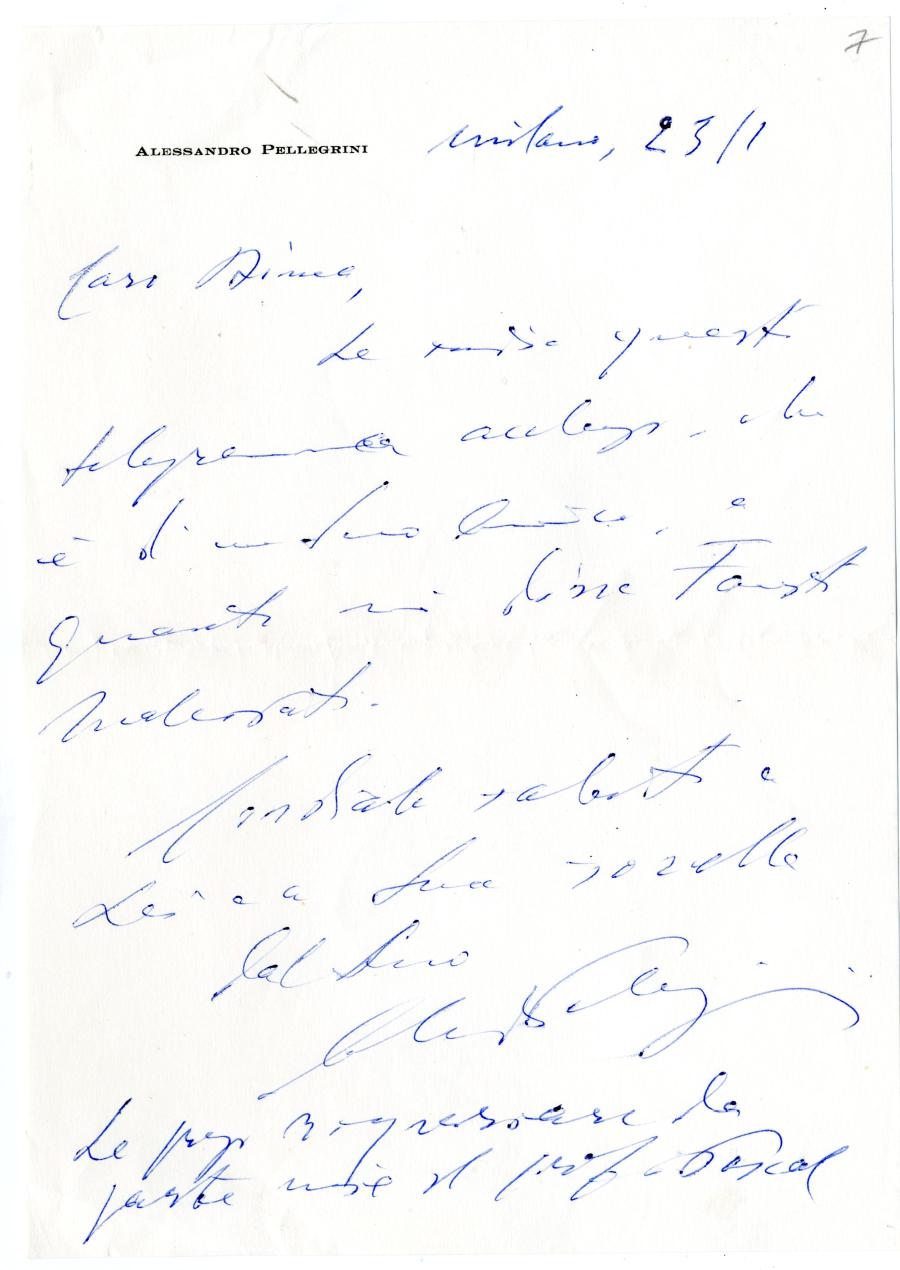 7
ALESSANDRO PELLEGRINI
Milano, 23/1
Caro
Le questo
telegramma accluso, che
è di un Suo amico, a
quanto mi disse Fausto
Malcovati.
Cordiali saluti a
Lei e a Sua sorella
dal Suo
Aless Pellegrini
Le prego ringraziare da
parte mia il prof.